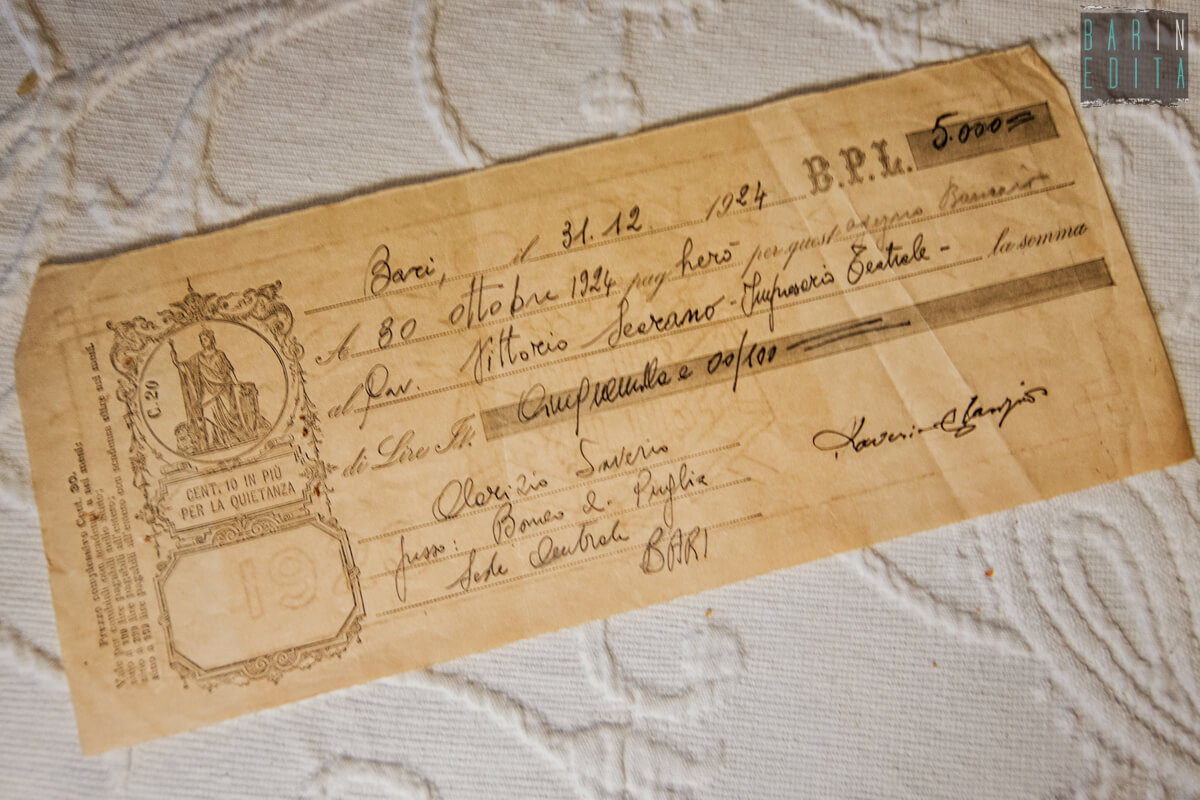 BARIN
EDITA
B.P.L. 5.000=
Bari, il 31.12. 1924
A 30 ottobre 1924 pagherò per quest assegno Bancario
al Cav. Vittorio Scorano - Impresario Teatrale - la somma
di Lire It. Cinquemila e 00/100
Clarizio Saverio
presso: Banco d. Puglia
Sede Centrale
BARI
Saverio Clarizio
C. 20
CENT. 10 IN PIÙ
PER LA QUIETANZA
19
Prezzo complessivo Cent. 30.